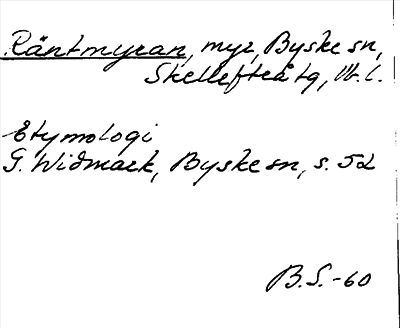 Räntmyran, myr, Byske sn,
Skellefteå tg, Vb. l.
Etymologi
G. Widmark, Byske sn, s. 52
B.S.-60